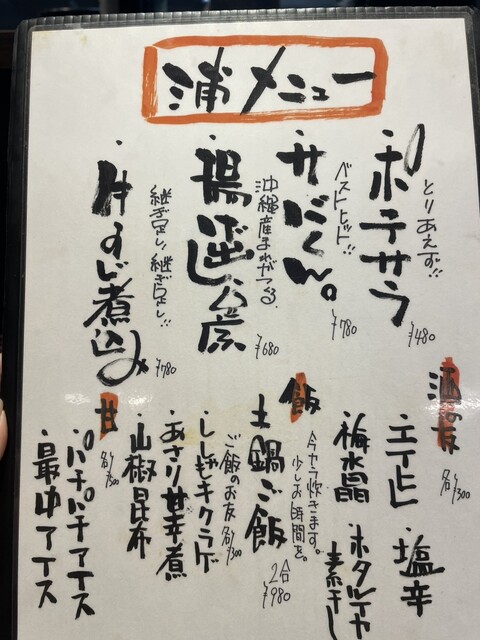 浦メニュー
・ポテサラ
とりあえず!!
¥480
・サバくん。
ベストヒット!!
¥780
・揚げ出し公房
沖縄産まれがつくる
¥680
・牛すじ煮込み
継ぎ足し継ぎ足し!!
¥780
酒の友
各¥300
・エイヒレ
・塩辛
・梅水晶
・ホタルイカ素干し
飯
・土鍋ご飯
今から炊きます。
少しお時間を。
2合
¥980
ご飯のお友 各¥300
・ししゃもキクラゲ
・あさり甘辛煮
・山椒昆布
甘
各¥300
・パチパチアイス
・最中アイス